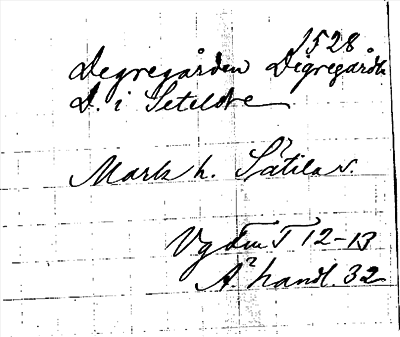 1528
Degregården Digregårdh
D. i Seteldre
Mark h. Sätila s.
Vg dm I 12-13
Ä. handl. 32